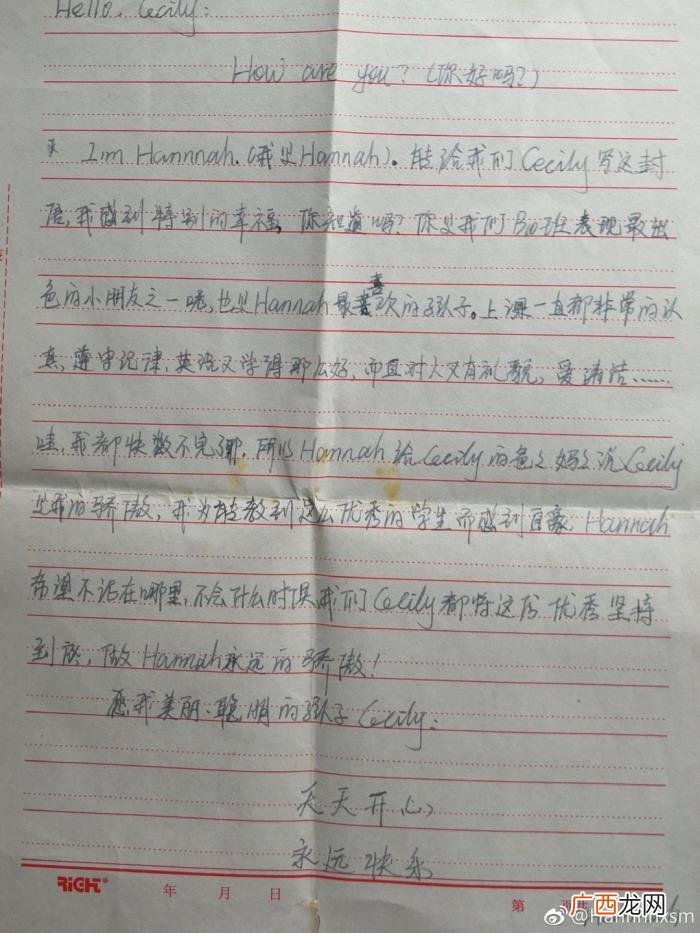 Hello, Cecily:
How are you? (你好吗?)
I'm Hannnah. (我是Hannah)。能给我们Cecily写这封
信,我感到特别的幸福,你知道吗?你是我们Bio班表现最出
色的小朋友之一呢,也是Hannah最喜欢的孩子。上课一直都非常的认
真,遵守纪律,英语又学得那么好,而且对人又有礼貌,爱清洁……
哇,我都快数不完了耶。所以Hannah给Cecily的爸爸妈妈说Cecily
是我的骄傲,我为能教到这么优秀的学生而感到自豪,Hannah
希望不论在哪里,不会什么时候我们Cecily都将这份优秀坚持
到底,做Hannah永远的骄傲!
愿我美丽、聪明的孩子Cecily:
天天开心
永远快乐
RIGHT 年 月 日 第
广西龙网
@Hannnnxsm